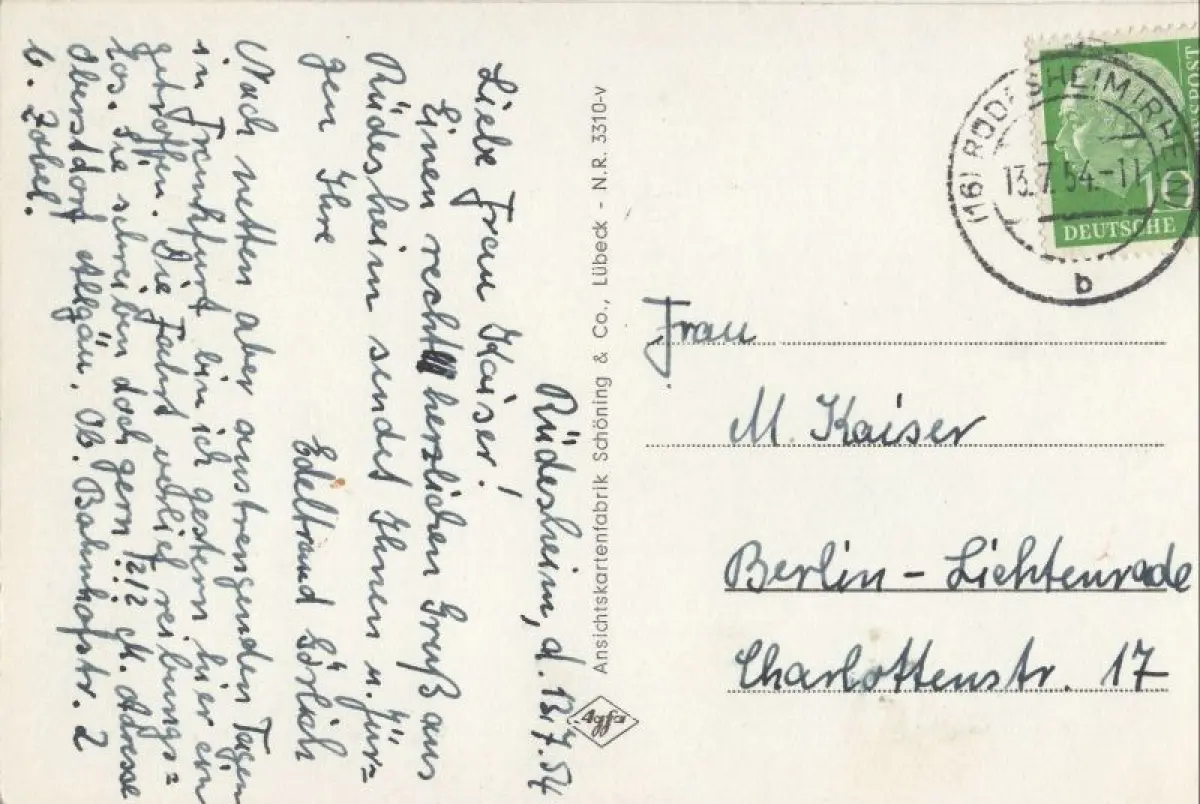 Rüdesheim, d. 13.7.54
Liebe Frau Kaiser!
Einen recht herzlichen Gruß aus
Rüdesheim sendet Ihnen u. Jür=
gen Ihre
Edeltraud Görlich
Nach netten aber anstrengenden Tagen
in Frankfurt bin ich gestern hier ein
getroffen. Die Fahrt verlief reibungs=
los. Sie schreiben doch gern?!? M. Adresse
Oberstdorf Allgäu. Ob. Bahnhofstr. 2
b. Zobel.
Ansichtskartenfabrik Schöning & Co., Lübeck - N.R. 3310-v
Agfa
(16) RÜDESHEIM (RHEIN)
13.7.54.-11
b
POST
10
DEUTSCHE
Frau
M. Kaiser
Berlin - Lichtenrade
Charlottenstr. 17